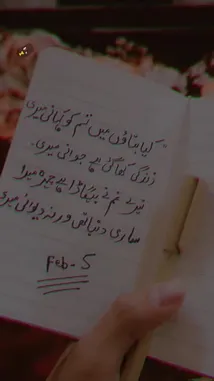 کیا بتاؤں میں تم کو کہانی میری
زندگی کھا گئی ہے جوانی میری۔
تیرے غم نے بگاڑا ہے چہرہ میرا
ساری دنیا تھی ورنہ دیوانی میری
Feb-5